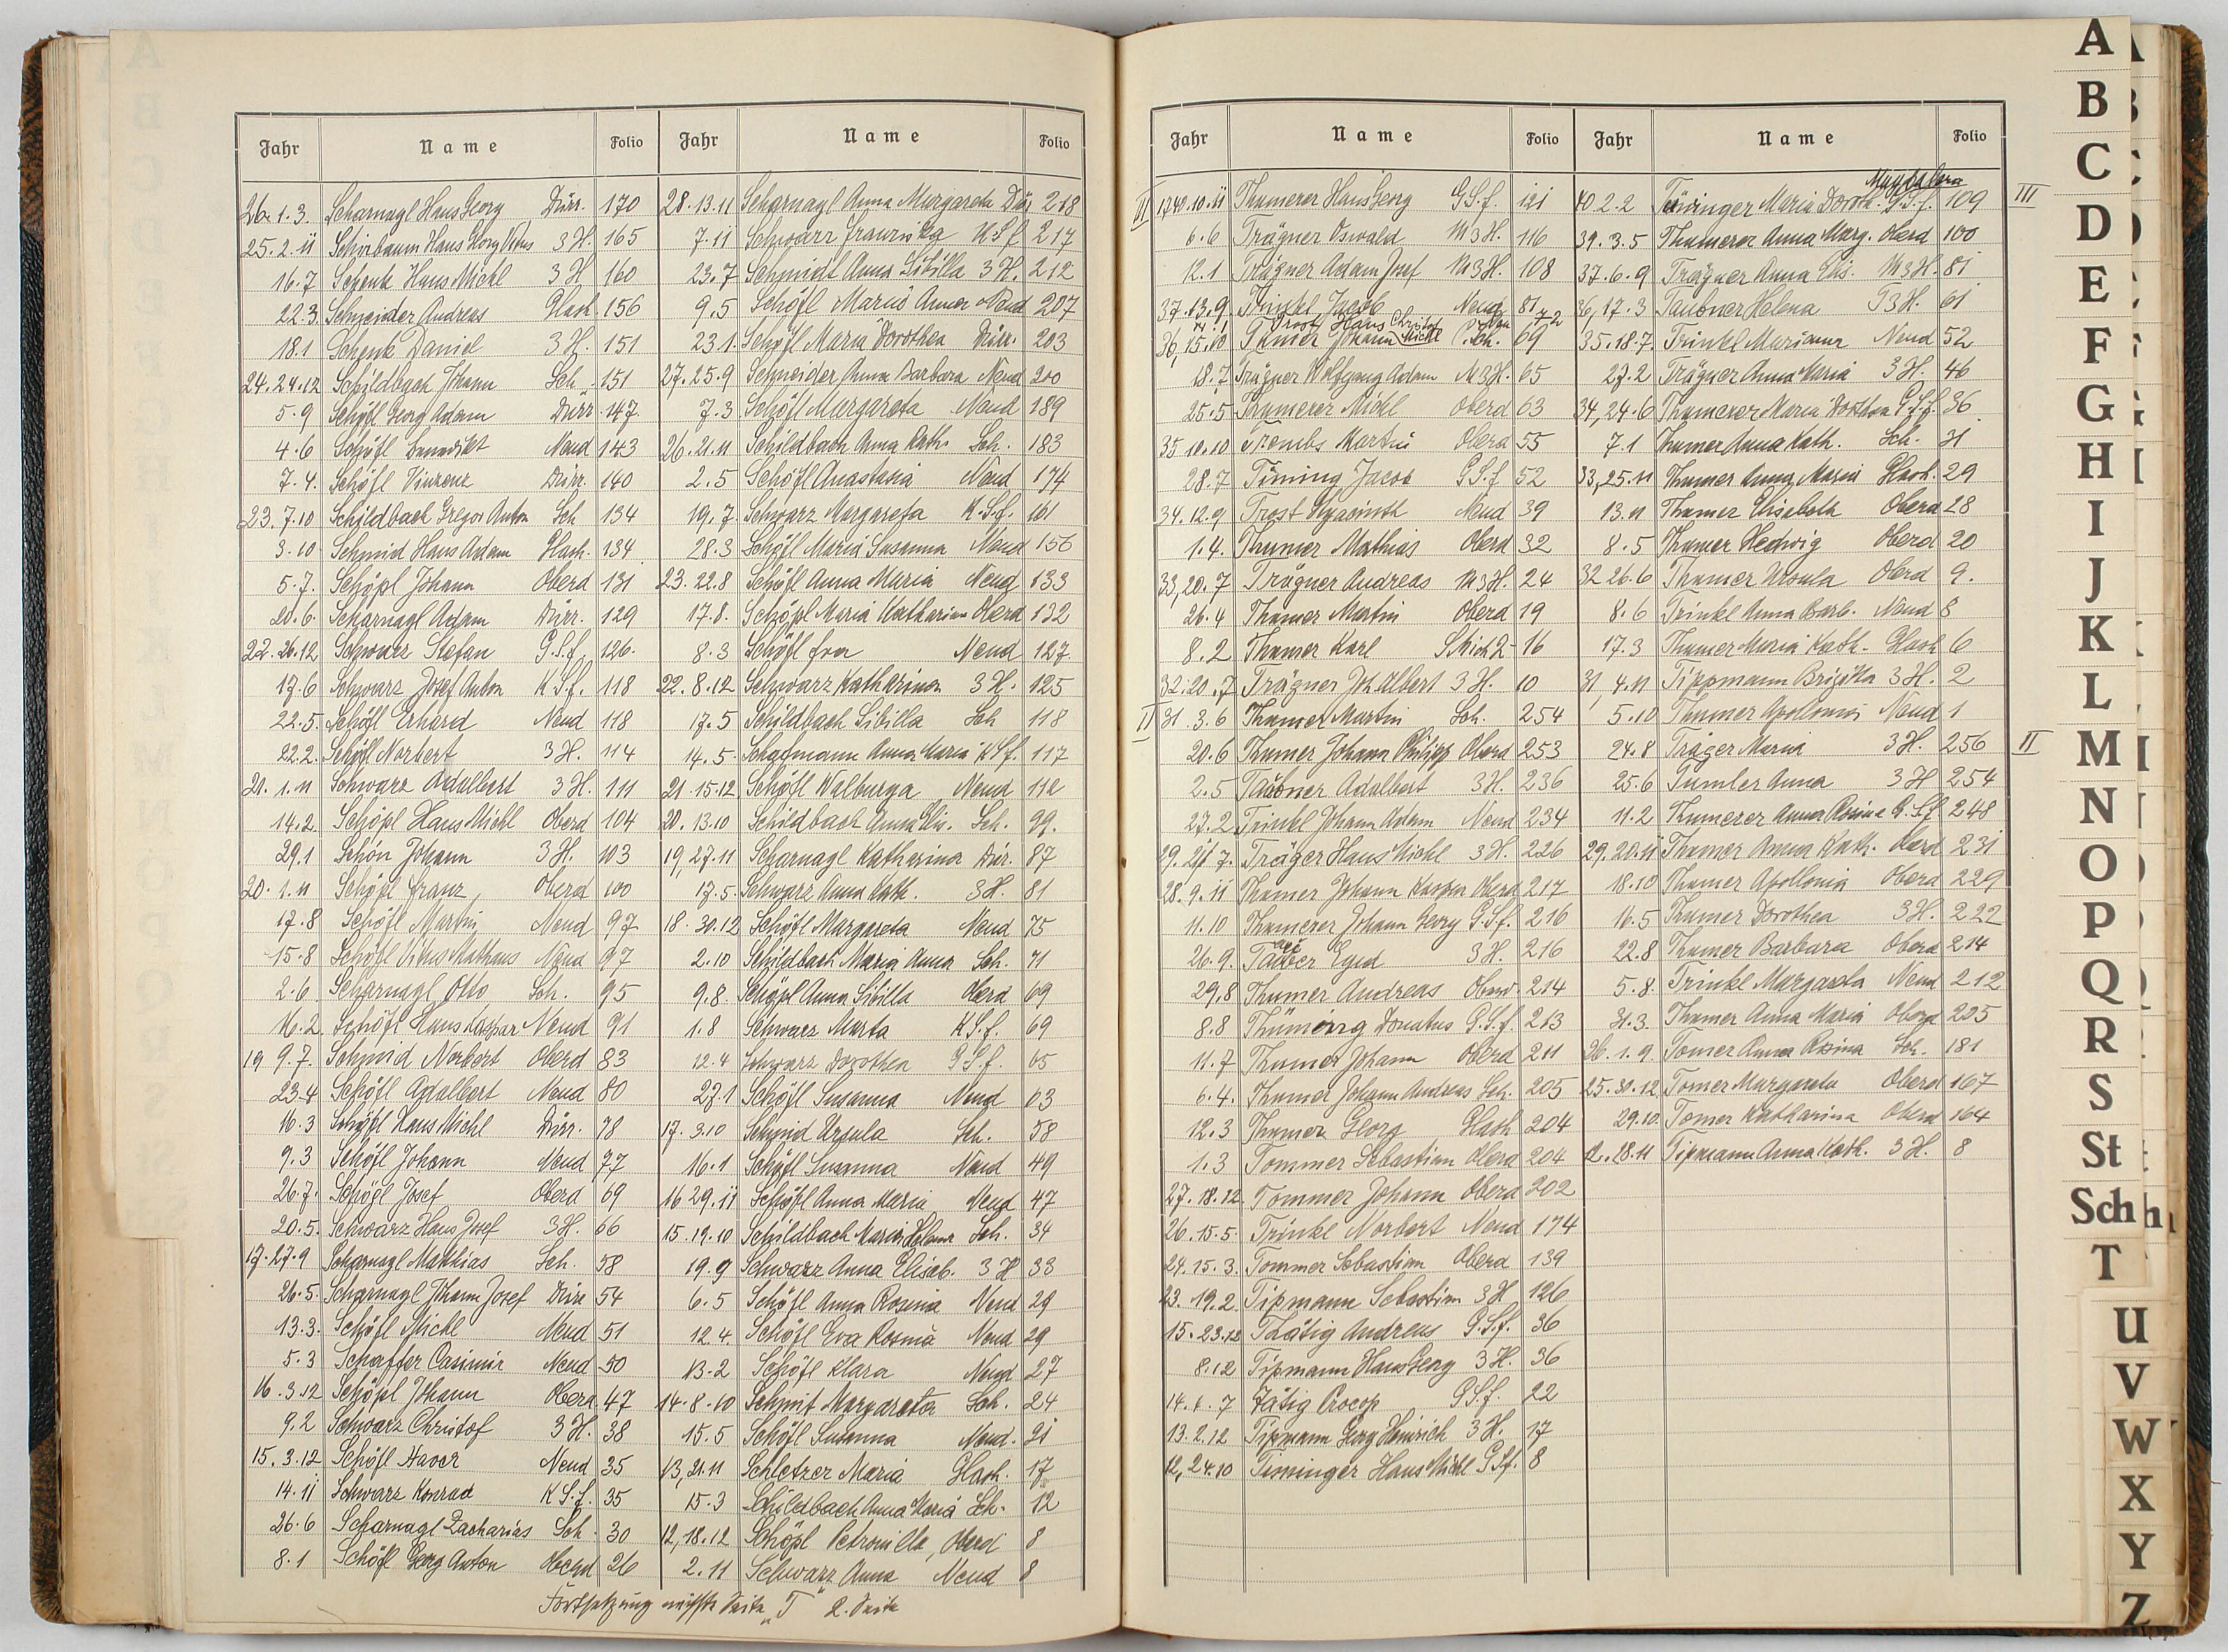 Jahr Name Folio
26. 1. 3. Scharnagl Hans Georg Dürr. 170
25. 2. 11 Schirbaum Hans Georg Vitus 3 H. 165
16. 7 Schenk Hans Michl 3 H. 160
22. 3. Schneider Andreas Glash 156
18. 1 Schenk Daniel 3 H. 151
24. 24. 12 Schildbach Johann Sch. 151
5. 9 Schöfl Georg Adam Dürr. 147
4. 6 Schöfl Benedikt Neud 143
7. 4. Schöfl Vinzenz Dürr. 140
23. 7. 10 Schildbach Gregor Anton Sch 134
3. 10 Schmid Hans Adam Glash. 134
5. 7. Schöpl Johann Oberd 131
20. 6. Scharnagl Adam Dürr. 129
22. 26. 12 Schwarz Stefan G.S.f. 126.
17. 6 Schwarz Josef Anton K.S.f. 118
22. 5. Schöfl Erhard Neud 118
22. 2. Schöfl Norbert 3 H. 114
21. 1. 11 Schwarz Adalbert 3 H. 111
14. 2. Schöpl Hans Michl Oberd 104
29. 1 Schön Johann 3 H. 103
20. 1. 11 Schöpl Franz, Oberd 100
17. 8 Schöfl Martin Neud 97
15. 8 Schöfl Vitus Mathaus Neud 97
2. 6 Scharnagl Otto Sch. 95
16. 2. Schöfl Hans Kaspar Neud 91
19 9. 7. Schmid Norbert Oberd 83
23. 4 Schöfl Adalbert Neud 80
16. 3 Schöfl Hans Michl Dürr. 78
9. 3 Schöfl Johann Neud 77
26. 7. Schögl Josef Oberd 69
20. 5. Schwarz Hans Josef 3 H. 66
17. 27. 9 Scharnagl Mathias Sch. 58
26. 5. Scharnagl Johann Josef Dürr 54
13. 3. Schöfl Michl Neud 51
5. 3 Schaffer Casimir Neud 50
16. 3. 12 Schöpl Johann Oberd 47
9. 2 Schwarz Christof 3 H. 38
15. 3. 12 Schöfl Xaver Neud 35
14. 11 Schwarz Konrad K.S.f. 35
26. 6 Scharnagl Zacharias Sch. 30
8. 1 Schöfl Georg Anton Oberd 26
Jahr Name Folio
28. 13. 11 Scharnagl Anna Margareta Dür 218
7. 11 Schwarz Franziska K S f 217
23. 7 Schmidt Anna Sibilla 3 H. 212
9. 5 Schöfl Maria Anna Neud 207
23. 1. Schöfl Maria Dorothea Dürr. 203
27. 25. 9 Schneider Anna Barbara Neud 200
7. 3 Schöfl Margareta Neud 189
26. 21. 11 Schildbach Anna Kath. Sch. 183
2. 5 Schöfl Anastasia Neud 174
19. 7. Schwarz Margareta K.S.f. 161
28. 3 Schöfl Maria Susanna Neud 156
23. 22. 8 Schöfl Anna Maria Neud 133
17. 8. Schöpl Maria Katharina Oberd 132
8. 3 Schöfl Eva Neud 127
22. 8. 12 Schwarz Katharina 3 H. 125
17. 5 Schildbach Sibilla Sch 118
14. 5. Schatmann Anna Maria K S f. 117
21. 15. 12 Schöfl Walburga Neud 112
20. 13. 10 Schildbach Anna Elis. Sch. 99.
19, 27. 11 Scharnagl Katharina Dür. 87
17. 5. Schwarz Anna Kath. 3 H. 81
18. 30. 12 Schöfl Margareta Neud 75
2. 10 Schildbach Maria Anna Sch. 71
9. 8. Schöpl Anna Sibilla Oberd 69
1. 8 Schwarz Marta K.S.f. 69
12. 4 Schwarz Dorothea G.S.f. 65
27. 1 Schöfl Susanna Neud 63
17. 3. 10 Schmid Ursula Sch. 58
16. 1 Schöfl Susanna Neud 49
16 29. 11 Schöfl Anna Maria Neud 47
15. 19. 10 Schildbach Maria Helena Sch. 34
19. 9 Schwarz Anna Elisab. 3 H 33
6. 5 Schöfl Anna Rosina Neud 29
12. 4. Schöfl Eva Rosina Neud 29
13. 2 Schöfl Klara Neud 27
14. 8. 10 Schmit Margareta Sch. 24
15. 5 Schöfl Susanna Neud. 21
13, 21. 11 Schletzer Maria Glash. 17
15. 3 Schildbach Anna Maria Sch. 12
12, 18. 12 Schöpl Petronilla, Oberd 8
2. 11 Schwarz Anna Neud 8
Fortsetzung nächste Seite „T" 2. Seite
Jahr Name Folio
VI 1740. 10. 11 Thumerer Hans Georg G.S.f. 121
6. 6 Trägner Oswald M 3 H. 116
12. 1 Trägner Adam Josef M 3 H. 108
37. 13. 9. Trinkl Jacob Neud 81
Trost Hans Christof Neu 72
36, 15. 10 Tumer Johann Michl Sch. 69
18. 7 Trägner Wolfgang Adam M 3 H. 65
25. 5 Thumerer Michl Oberd 63
35 10. 10 Trembs Martin Oberd 55
28. 7 Timing Jacob G.S.f 52
34. 12. 9 Trost Hyacinth Neud 39
1. 4. Thumer Mathias Oberd 32
33, 20. 7 Trägner Andreas M 3 H. 24
26. 4 Thumer Martin Oberd 19
8. 2 Thumer Karl 16
32. 20. 7 Trägner Joh Albert 3 H. 10
II 31. 3. 6 Thumer Martin Sch. 254
20. 6 Thumer Johann Philipp Oberd 253
2. 5 Taubner Adalbert 3 H. 236
27. 2. Trinkl Johann Adam Neud 234
29. 21 7. Träger Hans Michl 3 H. 226
28. 9. 11 Thumer Johann Kaspar Oberd 217
11. 10 Thumerer Johann Georg G.S.f. 216
26. 9. Tauber Egid 3 H. 216
29. 8 Thumer Andreas Oberd. 214
8. 8 Thüming Donatus G.S.f. 213
11. 7 Thumer Johann Oberd 211
6. 4. Thumer Johann Andreas Sch. 205
12. 3 Thumer Georg Glash 204
1. 3 Tommer Sebastian Oberd 204
27. 18. 12. Tommer Johann Oberd 202
26. 15. 5. Trinkl Norbert Neud 174
24. 15. 3. Tommer Sebastian Oberd 139
23. 19. 2. Tipmann Sebastian 3 H 126
15. 23. 12 Thätig Andreas G.S.f. 36
8. 12 Tipmann Hans Georg 3 H. 36
14. 1. 7 Tätig Procop G S f. 22
13. 2. 12 Tipmann Georg Heinrich 3 H. 17
12, 24. 10 Timinger Hans Michl G S f. 8
Jahr Name Folio
Magdalena
40 2. 2 Maria Doroth. G.S.f. 109 III
39. 3. 5 Thumerer Anna Marg. Oberd 100
37. 6. 9 Trägner Anna Elis. M 3 H. 81
36, 17. 3 Taubner Helena T 3 H. 61
35. 18. 7. Trinkl Marianna Neud 52
27. 2 Trägner Anna Maria 3 H. 46
34, 24. 6 Thumerer Maria Dorothea G.S.f. 36
7. 1 Thumer Anna Kath. Sch. 31
33, 25. 11 Thumer Anna Maria Glash. 29
13. 11 Thumer Elisabeth Oberd 28
8. 5 Thumer Hedwig Oberd 20
32 26. 6 Thumer Ursula Oberd 9.
8. 6 Trinkl Anna Barb. Neud 8
17. 3 Thumer Maria Kath. Glash 6
31, 4. 11 Tippmann Brigitta 3 H. 2
5. 10 Thumer Apollonia Neud 1
24. 8 Träger Maria 3 H. 256 II
25. 6 Tumler Anna 3 H 254
11. 2 Thumerer Anna Rosina G.Sf 248
29. 20. 11 Thumer Anna Kath. Oberd 231
18. 10 Thumer Apollonia Oberd 229
16. 5 Thumer Dorothea 3 H. 222
22. 8 Thumer Barbara Oberd 214
5. 8. Trinkl Margareta Neud 212
31. 3. Thumer Anna Maria Oberd 205
26. 1. 9. Tomer Anna Rosina Sch. 181
25. 30. 12. Tomer Margareta Oberd 167
29. 10. Tomer Katharina Oberd 164
12. 28. 11 Tipmann Anna Kath. 3 H. 8
A
B
C
D
E
F
G
H
I
J
K
L
M
N
O
P
Q
R
S
St
Sch
T
U
V
W
X
Y
Z